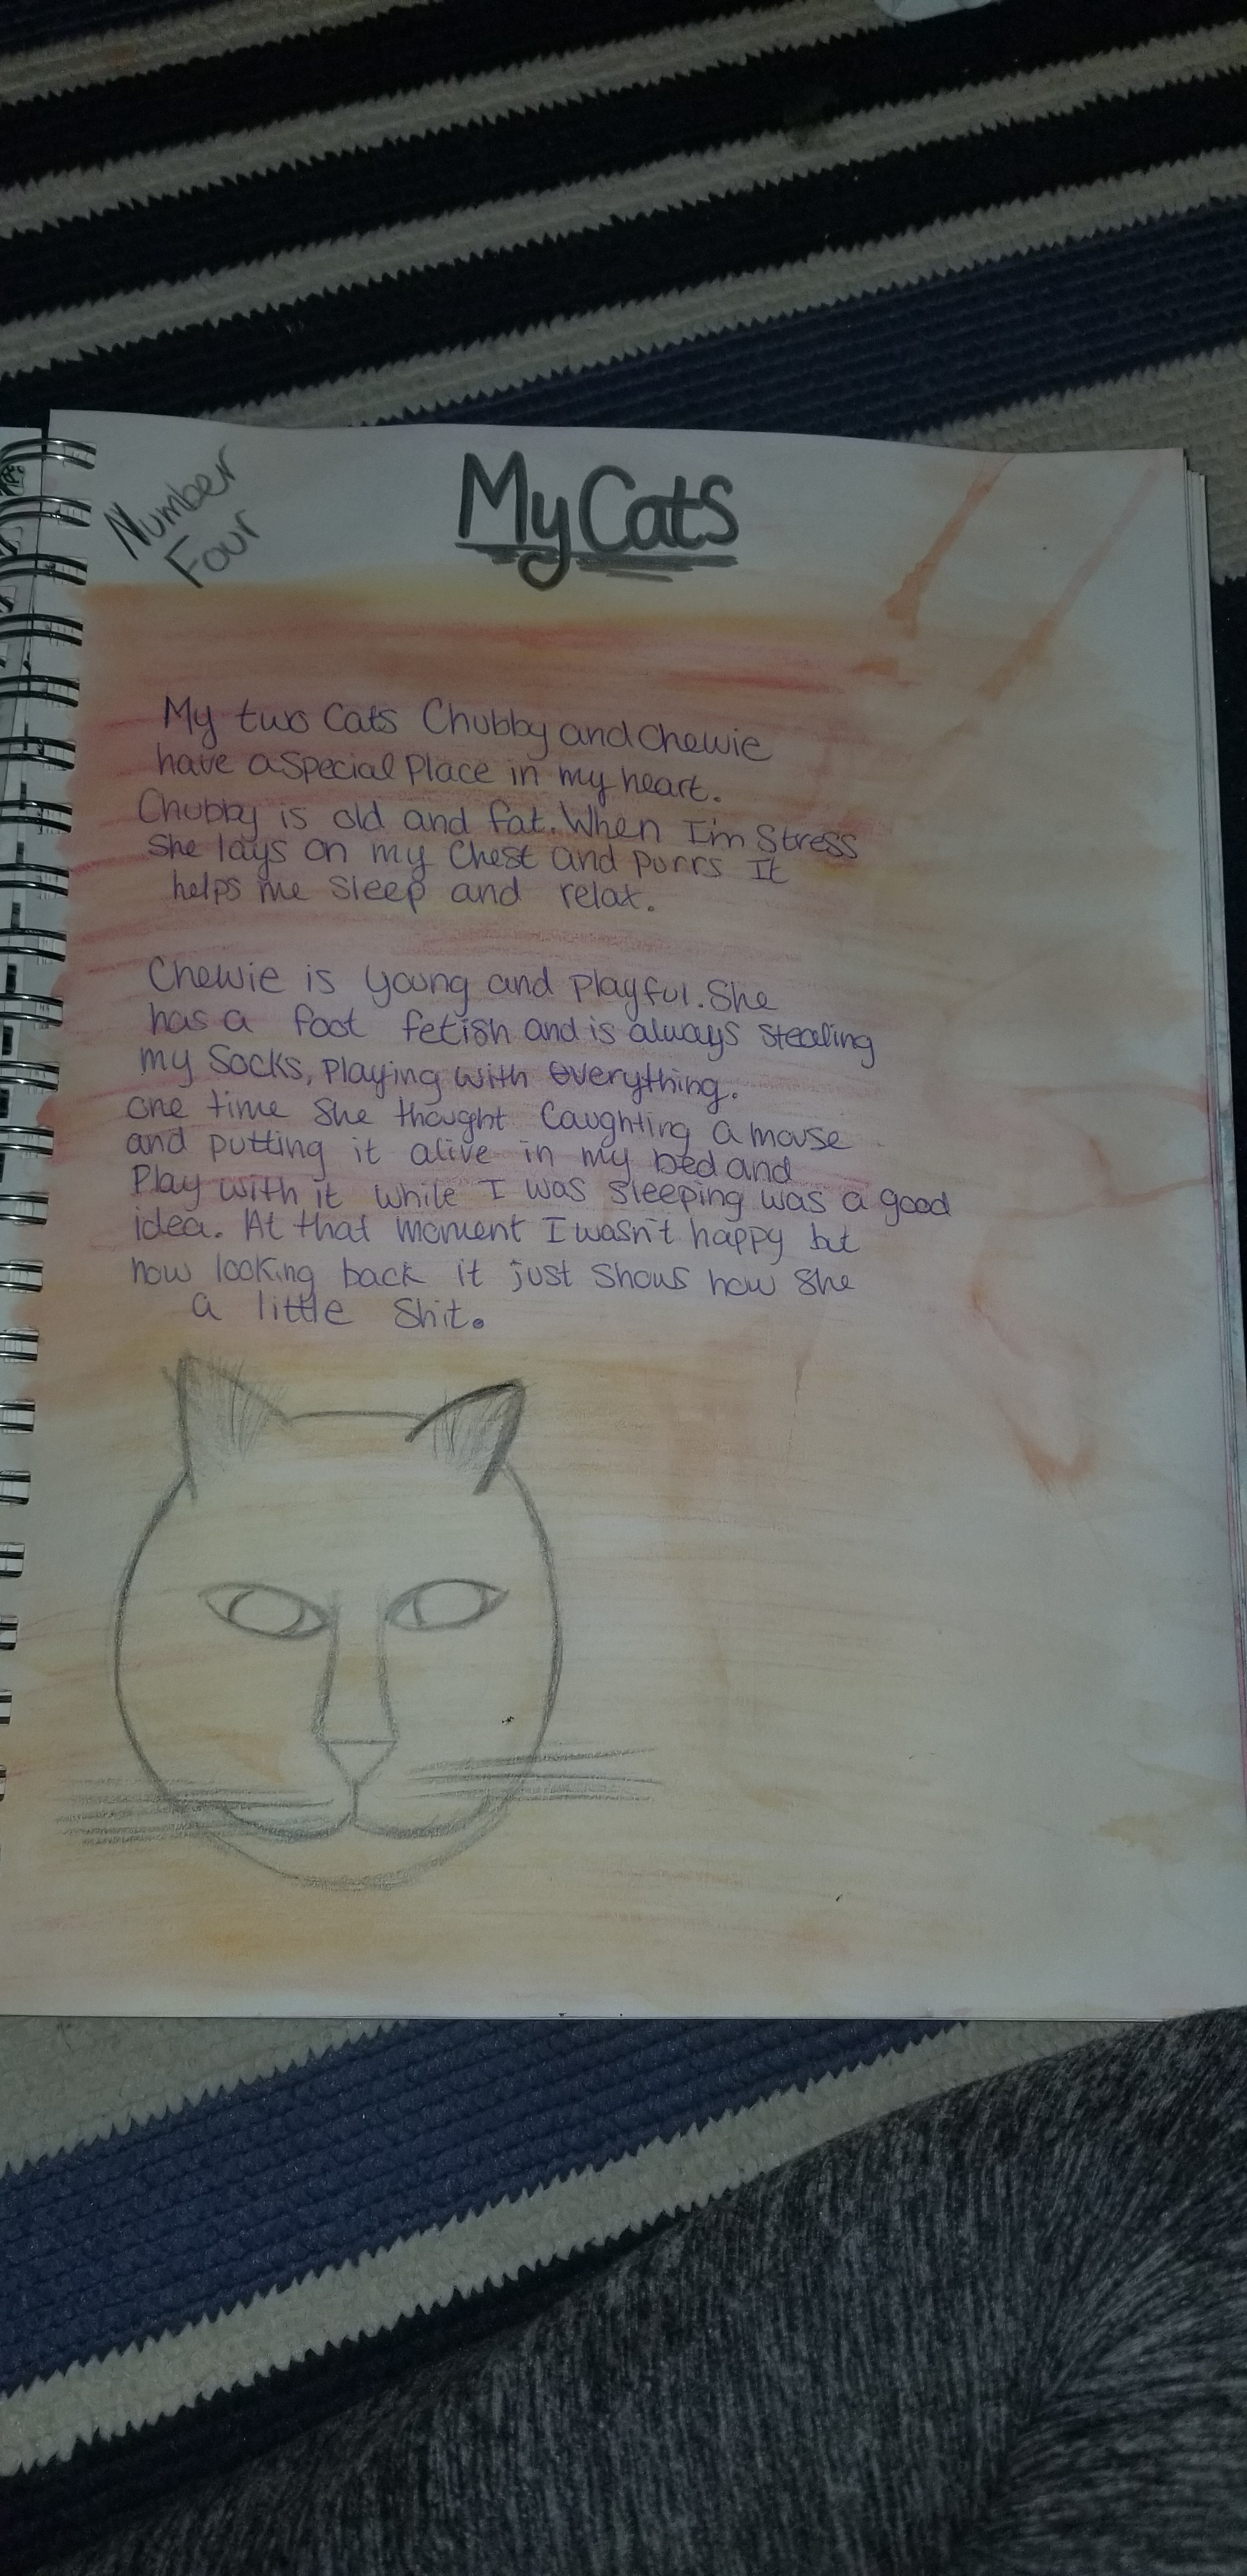 Number
Four
My Cats
My two Cats Chubby and Chewie
have a Special Place in my heart.
Chubby is old and fat. When I'm Stress
She lays on my Chest and Purrs It
helps me Sleep and relax.
Chewie is young and Playful. She
has a foot fetish and is always Stealing
my Socks, Playing with everything.
one time She thought Caughting a mouse
and putting it alive in my bed and
Play with it while I was sleeping was a good
idea. At that moment I wasn't happy but
now looking back it just Shows how She
a little Shit.